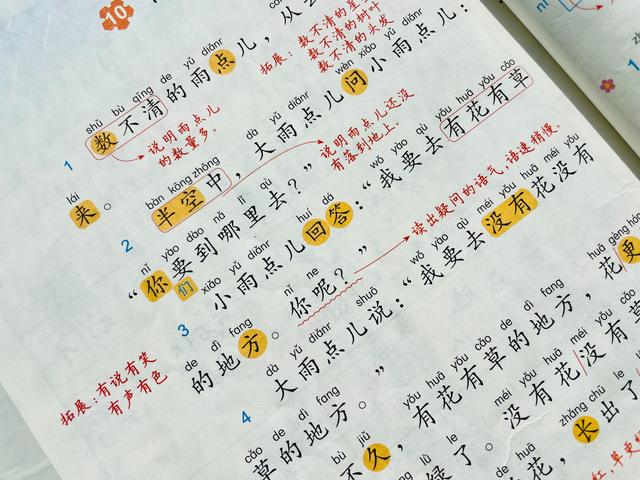 10
从
shǔ bù qīng de yǔ diǎnr
数不清的雨点儿，从云
拓展：数不清的星星
数不清的树叶
数不清的头发
说明雨点儿
的数量多。
1
lái
来。
bàn kōng zhōng dà yǔ diǎnr wèn xiǎo yǔ diǎnr
半空中，大雨点儿问小雨点儿：
说明雨点儿还没
有落到地上。
2
nǐ yào dào nǎ lǐ qù wǒ yào qù yǒu huā yǒu cǎo
“你要到哪里去？”“我要去有花有草
们
xiǎo yǔ diǎnr huí dá
小雨点儿回答：
读出疑问的语气，语速稍慢。
3
de dì fang nǐ ne wǒ yào qù méi yǒu huā méi yǒu
的地方。你呢？”“我要去没有花没有
dà yǔ diǎnr shuō
大雨点儿说：
拓展：有说有笑
有声有色
4
cǎo de dì fang
草的地方。”
bù jiǔ yǒu huā yǒu cǎo de dì fang huā gèng hóng
不久，有花有草的地方，花更
lǜ le méi yǒu huā méi yǒu cǎo
绿了。没有花没有草
de huā zhǎng chū le
花，长出了
红，草更